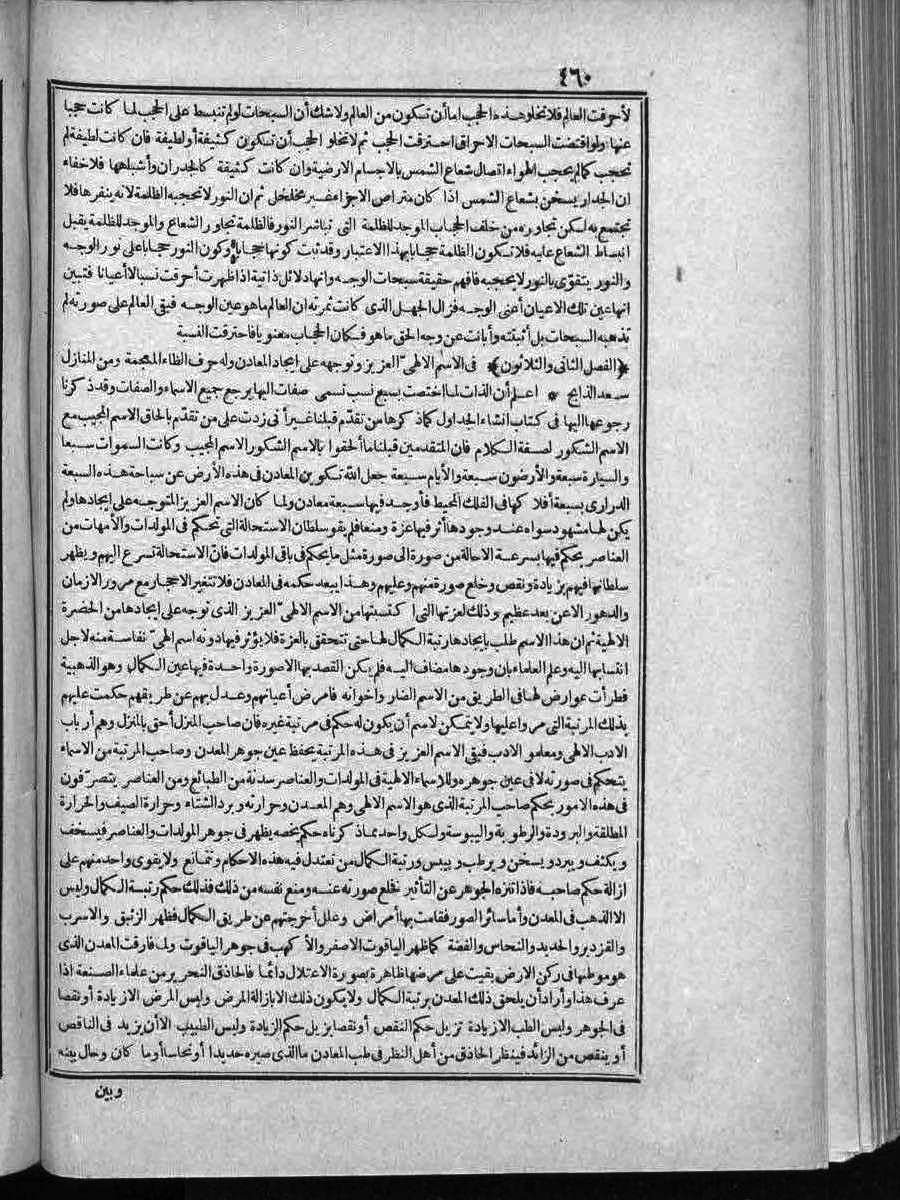 ٤٦٠
لأحرقت العالم فلا تخلو هذه الحجب اما أن تكون من العالم ولا شك أن السبحات لو لم تنبسط على الحجب لما كانت حجبا
عنها ولو اقتضت السبحات الاحراق احترقت الحجب ثم لا تخلو الحجب أن تكون كثيفة أو لطيفة فان كانت لطيفة لم
تحجب كما لم يحجب الهواء اتصال شعاع الشمس بالاجسام الارضية وان كانت كثيفة كالجدران وأشباهها فلا خفاء
ان الجدار يسخن بشعاع الشمس اذا كان متراص الاجزاء غير مخلخل ثم ان النور لا تحجبه الظلمة لانه ينفرها فلا
تجتمع به لكن تجاوره من خلف الحجاب الموجد للظلمة التي تباشر النور فالظلمة تجاور الشعاع والموجد للظلمة يقبل
انبساط الشعاع عليه فلا تكون الظلمة حجابا بهذا الاعتبار وقد ثبت كونها حجابا وكون النور حجابا على نور الوجه
والنور يتقوّى بالنور لا يحجبه فافهم حقيقة سبحات الوجه وانها دلائل ذاتية اذا ظهرت أحرقت نسبا لا أعيانا فتبين
انها عين تلك الاعيان أعنى الوجه فزال الجهل الذى كانت ثمرته ان العالم ما هو عين الوجه فبقى العالم على صورته لم
تذهبه السبحات بل أثبتته وأبانت عن وجه الحق ما هو فكان الحجاب معنويا فاحترقت النسبة
﴿الفصل الثانى والثلاثون﴾ فى الاسم الالهىّ العزيز وتوجهه على ايجاد المعادن وله حرف الظاء المعجمة ومن المنازل
سعد الذابح * اعلم أن الذات لما اختصت بسبع نسب تسمى صفات اليها يرجع جميع الاسماء والصفات وقد ذكرنا
رجوعها اليها فى كتاب انشاء الجداول كما ذكرها من تقدّم قبلنا غير أنى زدت على من تقدّم بالحاق الاسم المجيب مع
الاسم الشكور لصفة الكلام فان المتقدمين قبلنا ما ألحقوا بالاسم الشكور الاسم المجيب وكانت السموات سبعا
والسيارة سبعة والأرضون سبعة والأيام سبعة جعل الله تكوين المعادن فى هذه الأرض عن سباحة هذه السبعة
الدرارى بسبعة أفلاكها فى الفلك المحيط فأوجد فيها سبعة معادن ولما كان الاسم العزيز المتوجه على ايجادها ولم
يكن لها مشهود سواه عند وجودها أثر فيها عزة ومنعا فلم يقو سلطان الاستحالة التى تحكم فى المولدات والأمهات من
العناصر يحكم فيها بسرعة الاحالة من صورة الى صورة مثل ما يحكم فى باقى المولدات فان الاستحالة تسرع اليهم ويظهر
سلطانها فيهم بزيادة ونقص وخلع صورة منهم وعليهم وهذا يبعد حكمه فى المعادن فلا تتغير الاحجار مع مرور الازمان
والدهور الا عن بعد عظيم وذلك لعزتها التى اكتسبتها من الاسم الالهىّ العزيز الذى توجه على ايجادها من الحضرة
الالهية ثم ان هذا الاسم طلب بايجادها رتبة الكمال لها حتى تتحقق بالعزة فلا يؤثر فيها دونه اسم الهىّ نفاسة منه لاجل
انتسابها اليه وعلم العلماء بان وجودها مضاف اليه فلم يكن القصد بها الا صورة واحدة فيها عين الكمال وهو الذهبية
فطرأت عوارض لها فى الطريق من الاسم الضار واخوانه فامرض أعيانهم وعدل بهم عن طريقهم حكمت عليهم
بذلك المرتبة التى مروا عليها ولا يتمكن لاسم أن يكون له حكم فى مرتبة غيره فان صاحب المنزل أحق بالمنزل وهم أرباب
الادب الالهى ومعلمو الادب فبقى الاسم العزيز فى هذه المرتبة يحفظ عين جوهر المعدن وصاحب المرتبة من الاسماء
يتحكم فى صورته لا فى عين جوهره وللاسماء الالهية فى المولدات والعناصر سدنة من الطبائع ومن العناصر يتصرّفون
فى هذه الامور بحكم صاحب المرتبة الذى هو الاسم الالهى وهم المعدن وحرارته وبرد الشتاء وحرارة الصيف والحرارة
المطلقة والبرودة والرطوبة واليبوسة ولكل واحد مما ذكرناه حكم يخصه يظهر فى جوهر المولدات والعناصر فيسخف
ويكثف ويبرد ويسخن ويرطب وييبس ورتبة الكمال من تعتدل فيه هذه الاحكام وتتمانع ولا يقوى واحد منهم على
ازالة حكم صاحبه فاذا تنزه الجوهر عن التأثير بخلع صورته عنه ومنع نفسه من ذلك فذلك حكم رتبة الكمال وليس
الا الذهب فى المعدن وأما سائر الصور فقامت بها أمراض وعلل أخرجتهم عن طريق الكمال فظهر الزئبق والاسرب
والقزدير والحديد والنحاس والفضة كما ظهر الياقوت الاصفر والأكهب فى جوهر الياقوت ولما فارقت المعدن الذى
هو موطنها فى ركن الارض بقيت على مرضها ظاهرة بصورة الاعتلال دائما فالحاذق النحرير من علماء الصنعة اذا
عرف هذا وأراد أن يلحق ذلك المعدن برتبة الكمال ولا يكون ذلك الا بازالة المرض وليس المرض الا زيادة أو نقصا
فى الجوهر وليس الطب الا زيادة تزيل حكم النقص أو نقصا يزيل حكم الزيادة وليس الطبيب الا أن يزيد فى الناقص
أو ينقص من الزائد فينظر الحاذق من أهل النظر فى طب المعادن ما الذى صيره حديدا أو نحاسا أو ما كان وحال بينه
وبين